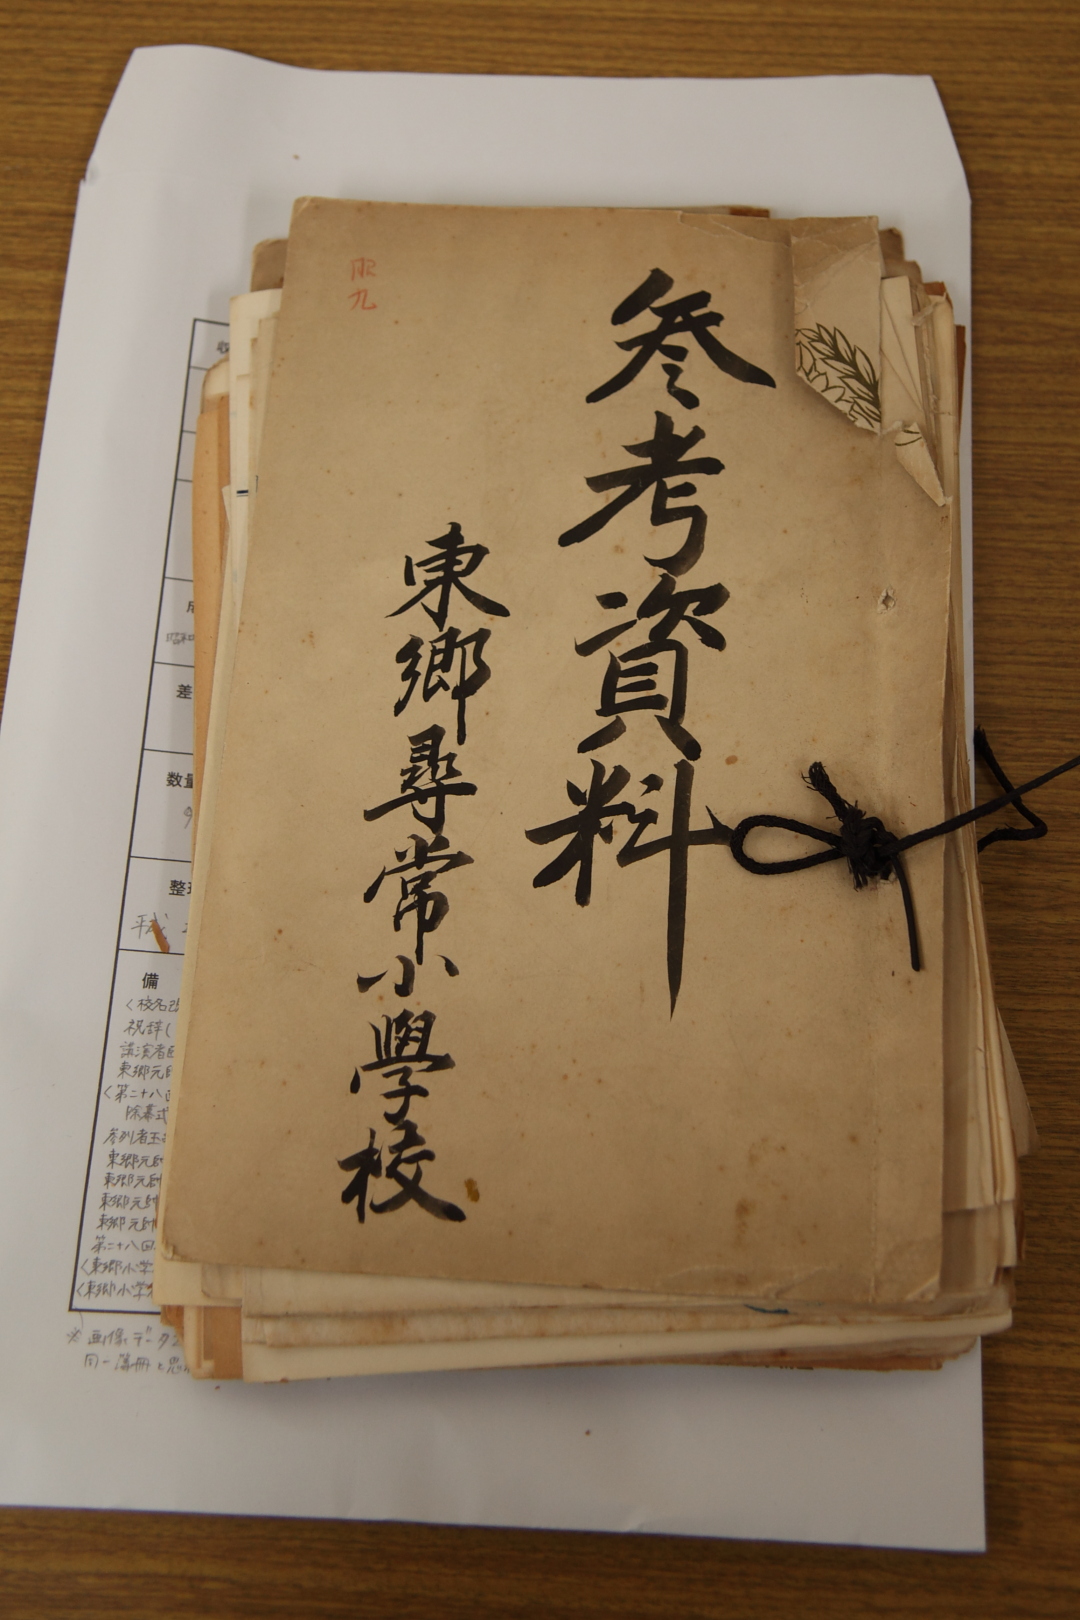 参考資料
東郷尋常小學校
九
収
差
数量
整理
平成
備
〈校名改
祝辞(
講演者
東郷元帥
〈第二十八回
除幕式
参列者玉
東郷元帥
東郷元帥
東郷元帥
東郷元帥
第二十八回
〈東郷小学
〈東郷小学校
※画像データ
同一簿冊と思